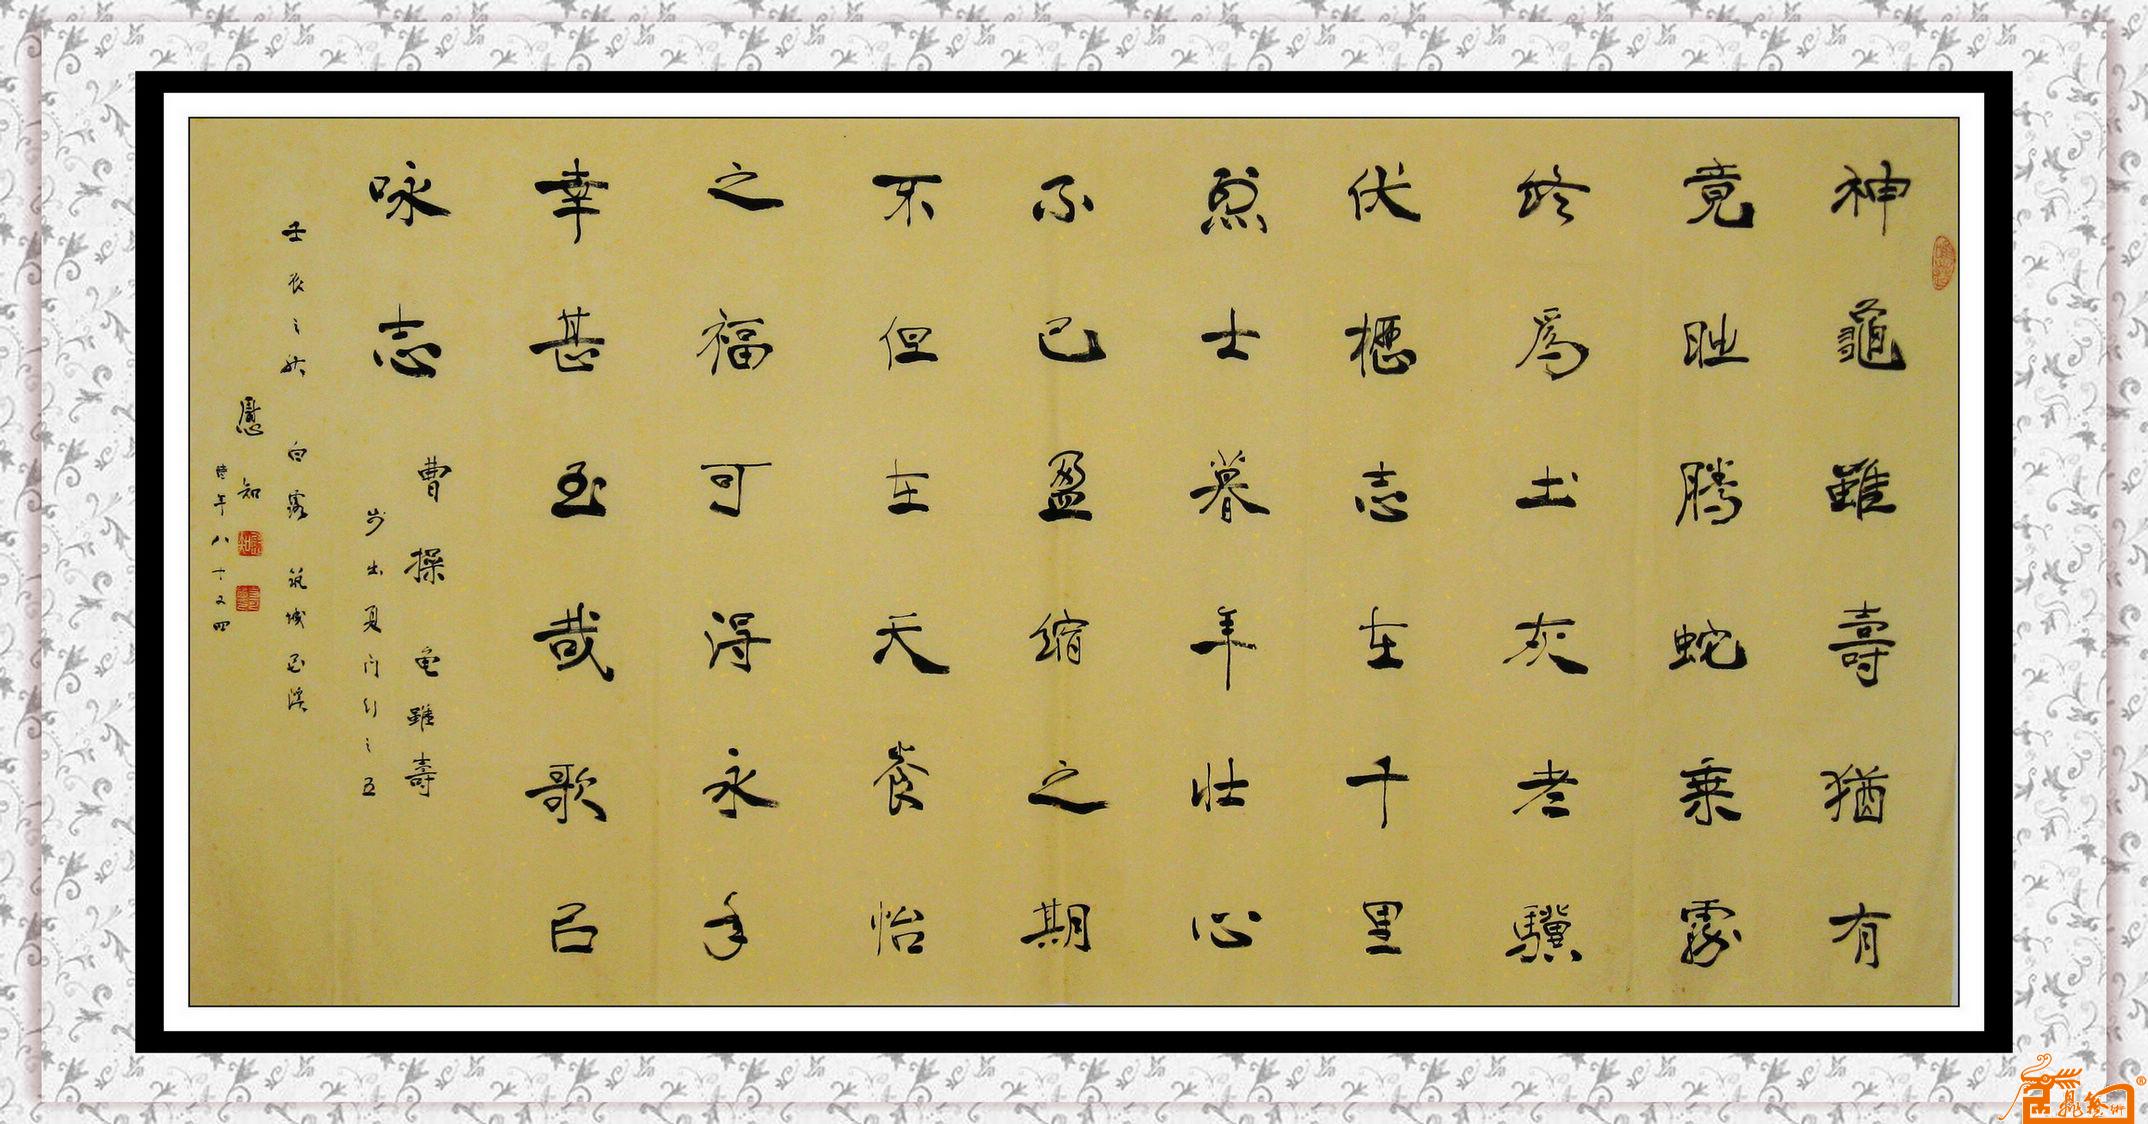 神龜雖壽猶有
竟時騰蛇乘霧
終為土灰老驥
伏櫪志在千里
烈士暮年壯心
不已盈縮之期
不但在天養怡
之福可得永年
幸甚至哉歌以
咏志
曹操 龟雖壽
步出夏门行之五
壬辰之秋 白露 筑城
愚知
時年八十又四